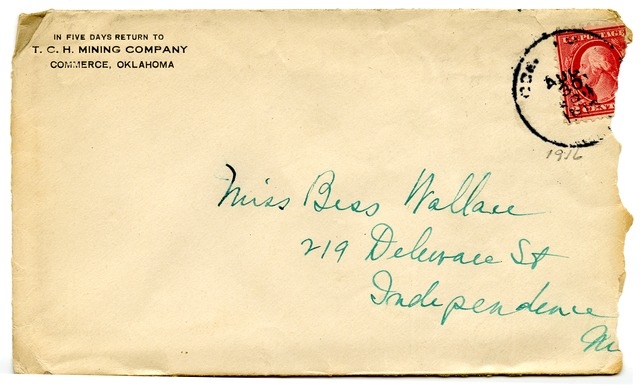 IN FIVE DAYS RETURN TO
T. C. H. MINING COMPANY
COMMERCE, OKLAHOMA
U.S. POSTAGE
AUG
30
1916
Miss Bess Wallace
219 Delaware St
Independence
M